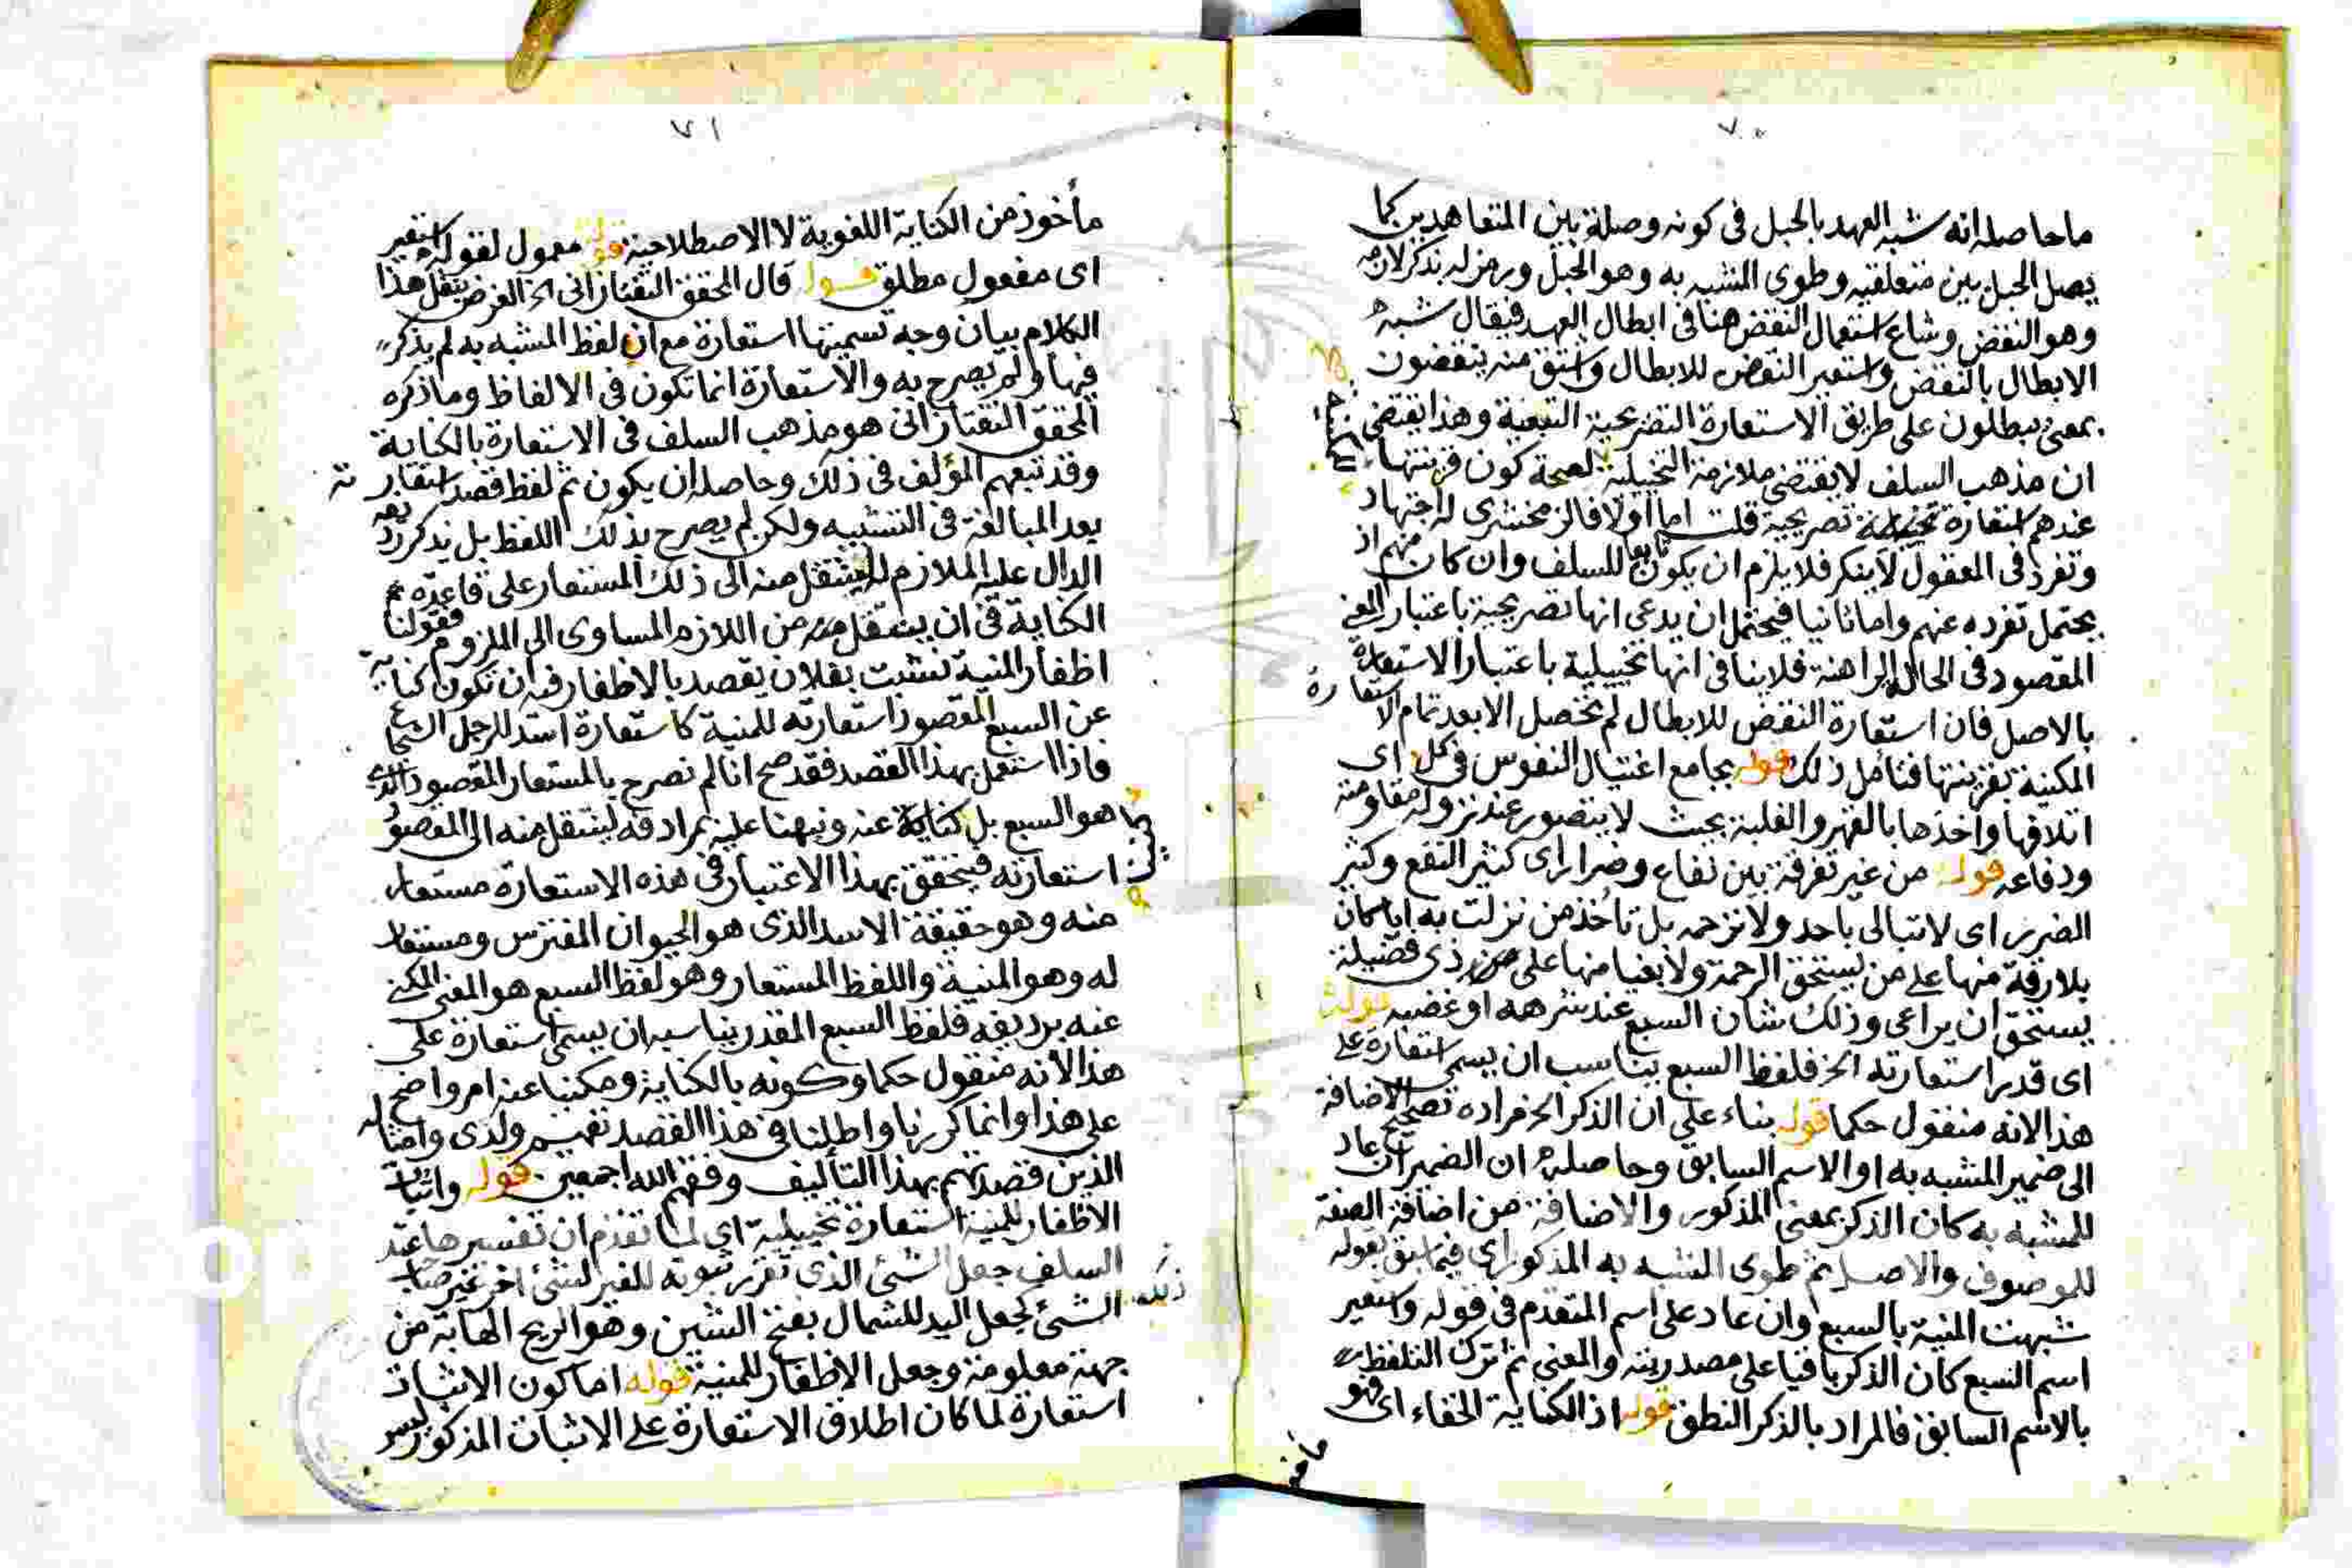 ٧٠
ما حاصله انه شبه العهد بالحبل فى كونه وصلة بين المتعاهدين كما
يصل الحبل بين متعلقيه وطوى المشبه به وهو الحبل ورمز له بذكر لازمه
وهو النقض وشاع استعمال النقض هنا فى ابطال العهد فيقال شبه
الابطال بالنقض واستعير النقض للابطال واشتق منه ينقضون
بمعنى يبطلون على طريق الاستعارة التصريحية التبعية وهذا يقتضى
ان مذهب السلف لا يقتضى ملازمة التخييلية لصحة كون قرينتها
عندهم استعارة تصريحية قلت اما اولا فالزمخشرى له اجتهاد
وتفرد فى المعقول لا ينكر فلا يلزم ان يكون تابعا للسلف وان كان منهم اذ
يحتمل تفرده عنهم واما ثانيا فيحتمل ان يدعى انها تصريحية باعتبار المعنى
المقصود فى الحالة الراهنة فلا ينافى انها تخييلية باعتبار الاستعارة
بالاصل فان استعارة النقض للابطال لم تحصل الا بعد تمام الاستعارة
المكنية بقرينتها فتأمل ذلك قوله بجامع اغتيال النفوس فى كل اى
اتلافها واخذها بالقهر والغلبة بحيث لا يتصور عند نزوله مقاومته
ودفاعه قوله من غير تفرقة بين نفاع وضرار اى كثير النفع وكثير
الضرر اى لا تبالى باحد ولا ترحمه بل تأخذ من نزلت به ايا كان
بلا رقة منها على من يستحق الرحمة ولا بقيا منها على ذى فضيلة
يستحق ان يراعى وذلك شان السبع عند شرهه او غضبه قوله
اى قدر استعارته الخ فلفظ السبع يناسب ان يسمى استعارة على
هذا لانه منقول حكما قوله بناء على ان الذكر الخ مراده تصحيح الاضافة
الى ضمير المشبه به او الاسم السابق وحاصله ان الضمير ان عاد
للمشبه به كان الذكر بمعنى المذكور والاضافة من اضافة الصفة
للموصوف والاصل ثم طوى المشبه به المذكور اى فيما سبق بقوله
شبهت المنية بالسبع وان عاد على اسم المتقدم فى قوله واستعير
اسم السبع كان الذكر باقيا على مصدريته والمعنى ثم ترك التلفظ
بالاسم السابق فالمراد بالذكر النطق قوله اذ الكناية الخفاء اى فهو
مأخوذ
٧١
مأخوذ من الكناية اللغوية لا الاصطلاحية قوله معمول لقوله استعير
اى مفعول مطلق قوله قال المحقق التفتازانى الخ الغرض بنقل هذا
الكلام بيان وجه تسميتها استعارة مع ان لفظ المشبه به لم يذكر
فيها ولم يصرح به والاستعارة انما تكون فى الالفاظ وما ذكره
المحقق التفتازانى هو مذهب السلف فى الاستعارة بالكناية
وقد تبعهم المؤلف فى ذلك وحاصله ان يكون ثم لفظ قصد استعارته
بعد المبالغة فى التشبيه ولكن لم يصرح بذلك اللفظ بل يذكر رديفه
الدال عليه الملازم لينتقل منه الى ذلك المستعار على قاعدة
الكناية فى ان ينتقل من اللازم المساوى الى الملزوم فقولنا
اظفار المنية نشبت بفلان يقصد بالاظفار فيه ان تكون كناية
عن السبع المقصود استعارته للمنية كاستعارة اسد للرجل الشجاع
فاذا استعمل بهذا القصد فقد صح انا لم نصرح بالمستعار المقصود الذى
هو السبع بل كناية عنه ونبهنا عليه بمرادفه لينتقل منه الى المقصود
استعارته فيتحقق بهذا الاعتبار فى هذه الاستعارة مستعار
منه وهو حقيقة الاسد الذى هو الحيوان المفترس ومستعار
له وهو المنية واللفظ المستعار وهو لفظ السبع هو المعنى المكنى
عنه برديفه فلفظ السبع المقدر يناسبه ان يسمى استعارة على
هذا لانه منقول حكما وكونه بالكناية ومكنيا عنه امر واضح
على هذا وانما كررنا واطلنا فى هذا القصد تفهيم ولدى وامثاله
الذين قصدتهم بهذا التأليف وفقهم الله اجمعين قوله واثبات
الاظفار للمنية استعارة تخييلية اى لما تقدم ان تفسيرها عند
السلف جعل الشئ الذى تقرر ثبوته للغير لشئ اخر غير صاحب
ذلك
الشئ كجعل اليد للشمال بفتح الشين وهو الريح الهابة من
جهة معلومة وجعل الاظفار للمنية قوله اما كون الاثبات
استعارة لما كان اطلاق الاستعارة على الاثبات المذكور ليس